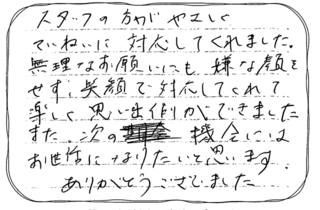 スタッフの方がやさしく
ていねいに対応してくれました。
無理なお願いにも嫌な顔を
せず、笑顔で対応してくれて
楽しく思い出作りができました
また、次の機会には
お世話になりたいと思います。
ありがとうございました